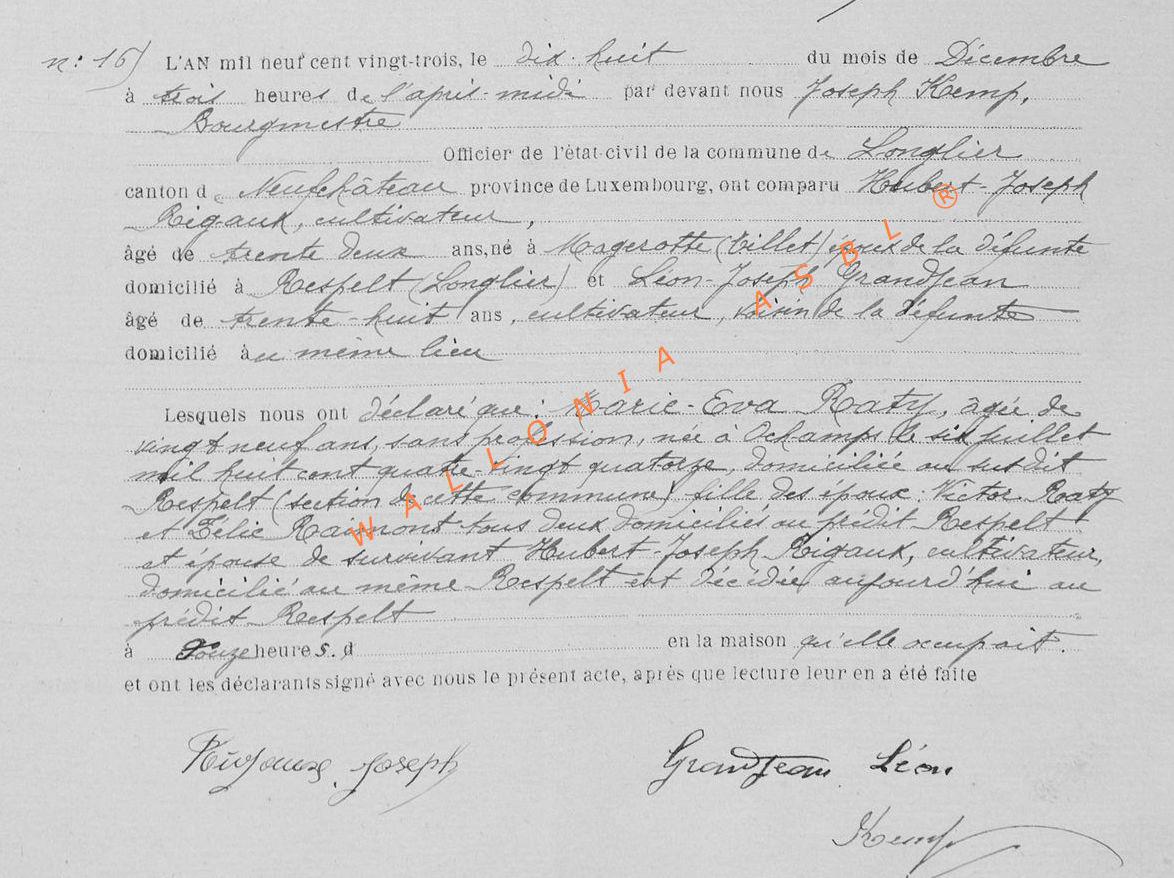 n: 16) L'AN mil neuf cent vingt-trois, le dix-huit du mois de Décembre
à trois heures de l'après-midi par devant nous Joseph Kemp,
Bourgmestre
Officier de l'état-civil de la commune de Longlier
canton de Neufchâteau province de Luxembourg, ont comparu Hubert-Joseph
Rigaux, cultivateur,
âgé de trente deux ans, né à Magerotte (Tillet) époux de la défunte
domicilié à Respelt (Longlier) et Léon-Joseph Grandjean
âgé de trente-huit ans, cultivateur, voisin de la défunte
domicilié au même lieu
Lesquels nous ont déclaré que: Marie-Eva Raty, âgée de
vingt neuf ans, sans profession, née à Ochamps le six juillet
mil huit cent quatre-vingt quatorze, domiciliée au susdit
Respelt (section de cette commune) fille des époux: Victor Raty
et Félie Raimont tous deux domiciliés au prédit Respelt
et épouse de survivant Hubert-Joseph Rigaux, cultivateur,
domicilié au même Respelt est décédée aujourd'hui au
prédit Respelt
à douze heures. d en la maison qu'elle occupait.
et ont les déclarants signé avec nous le présent acte, après que lecture leur en a été faite
Rigaux Joseph Grandjean Léon
Kemp
WALLONIA ASBL ®